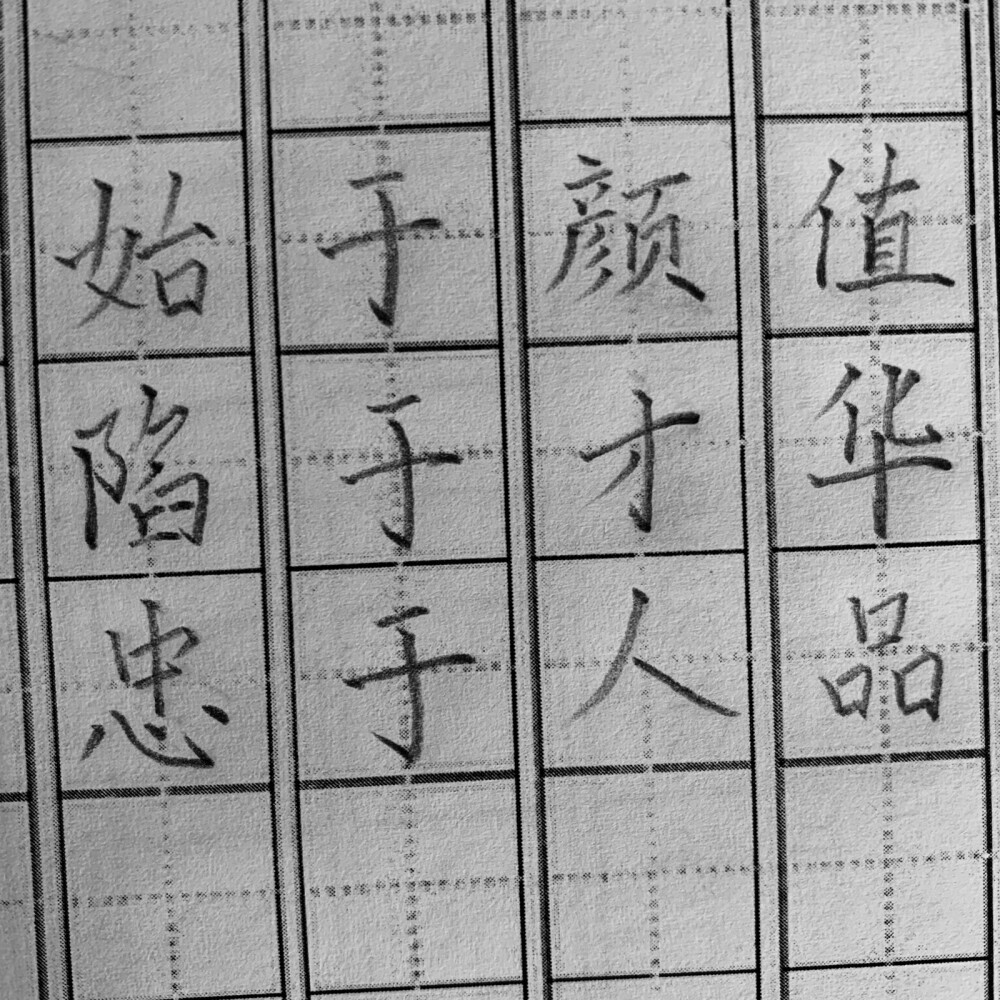 始于颜值
陷于才华
忠于人品